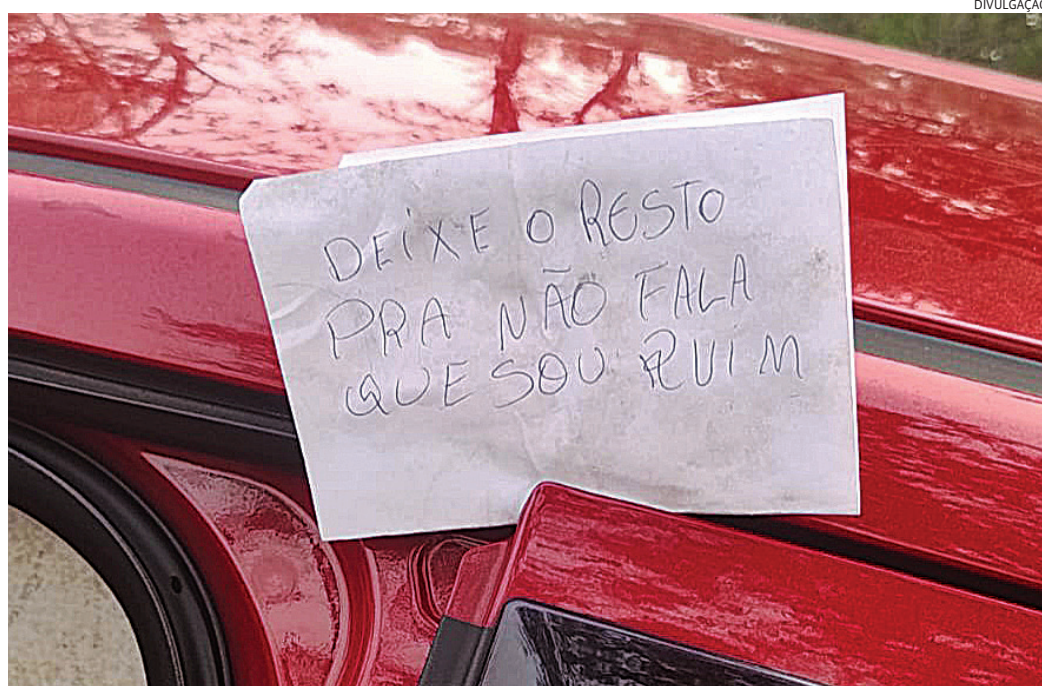 DIVULGAÇÃO
DEIXE O RESTO
PRA NÃO FALA
QUE SOU RUIM